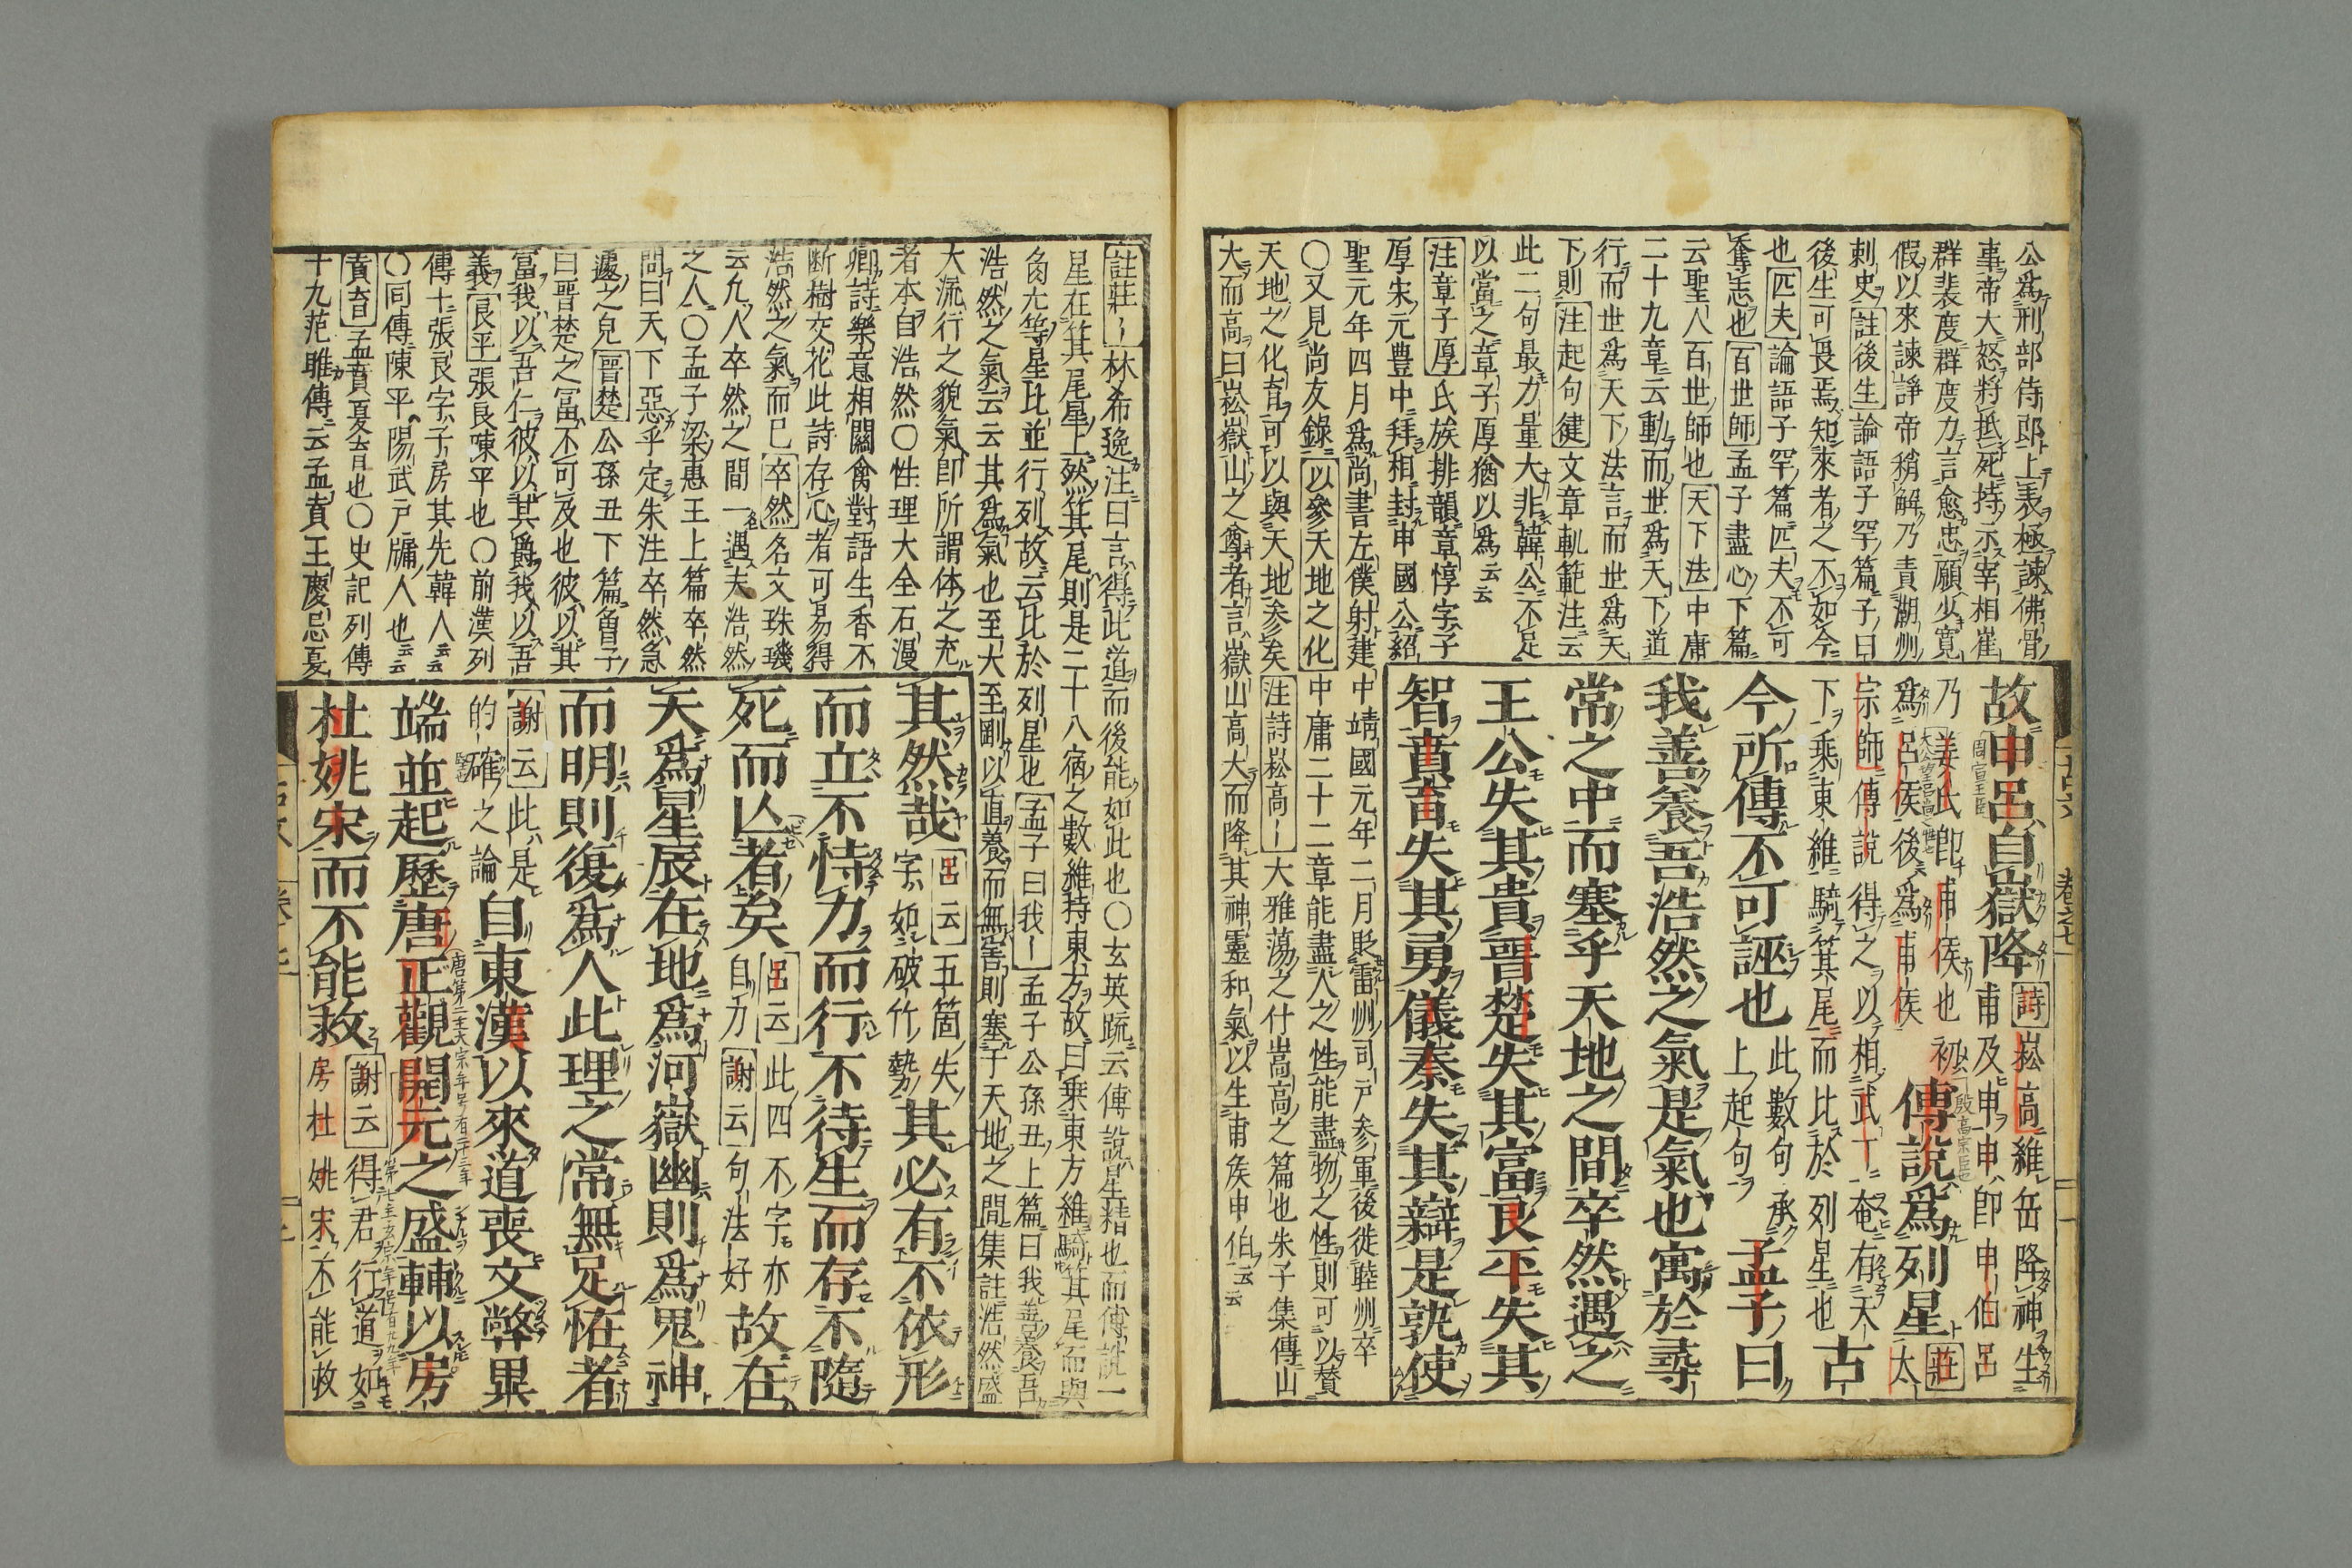 公爲刑部侍郎上表極諫佛骨
事帝大怒將抵死持示宰相崔
群裴度群度力言愈忠願少寬
假以來諫諍帝稍解乃責潮州
刺史註後生論語子罕篇子曰
後生可畏焉知來者之不如今
也匹夫論語子罕篇匹夫不可
奪志也百世師孟子盡心下篇
云聖人百世師也天下法中庸
二十九章云動而世爲天下道
行而世爲天下法言而世爲天
下則注起句健文章軌範注云
此二句最力量大非韓公不足
以當之章子厚猶以爲云云
注章子厚氏族排韻章惇字子
厚宋元豊中拜相封申國公紹
聖元年四月爲尚書左僕射建中靖國元年二月貶雷州司戸參軍後徙睦州卒
○又見尚友錄以參天地之化中庸二十二章能盡人之性能盡物之性則可以賛
天地之化育可以與天地参矣注詩崧高大雅蕩之什嵩高之篇也朱子集傳山
大而高曰崧嶽山之尊者言嶽山高大而降其神靈和氣以生甫侯申伯云云
故申呂自嶽降詩崧高維岳降神生
甫及申申即申伯呂
乃姜氏即甫侯也初
爲呂侯後爲甫侯傳說爲列星莊太
宗師傳說得之以相武丁奄有天
下乘東維騎箕尾而比於列星也古
今所傳不可誣也此數句承
上起句孟子曰
我善養吾浩然之氣是氣也寓於尋
常之中而塞乎天地之間卒然遇之
王公失其貴晋楚失其富良平失其
智賁育失其勇儀秦失其辯是孰使
註莊林希逸注曰言得此道而後能如此也○玄英疏云傳說星精也而傳說一
星在箕尾星上然箕尾則是二十八宿之數維持東方故曰乗東方維騎箕尾而與
角亢等星比並行列故云比於列星也孟子曰我孟子公孫丑上篇曰我善養吾
浩然之氣云云其爲氣也至大至剛以直養而無害則塞于天地之間集註浩然盛
大流行之貌氣即所謂体之充
者本自浩然○性理大全石漫
卿詩樂意相關禽對語生香不
断樹交花此詩存心者可易得
浩然之氣而已卒然名文珠璣
云凡人卒然之間一遇夫浩然
之人○孟子梁惠王上篇卒然
問曰天下惡乎定朱注卒然急
遽之皃晋楚公孫丑下篇曾子
曰晋楚之冨不可及也彼以其
富我以吾仁彼以其爵我以吾
義良平張良陳平也○前漢列
傳十張良字子房其先韓人云云
○同傳陳平陽武戸牖人也云云
賁育孟賁夏育也○史記列傳
十九范雎傳云孟賁王慶忌夏
其然哉呂云五箇失
字如破竹勢其必有不依形
而立不恃力而行不待生而存不隨
死而亾者矣呂云此四不字亦
自力謝云句法好故在
天爲星辰在地爲河嶽幽則爲鬼神
而明則復爲人此理之常無足恠者
謝云此是
的確之論自東漢以來道喪文弊異
端並起歷唐正觀開元之盛輔以房
杜姚宋而不能救謝云得君行道如
房杜姚宋不能救